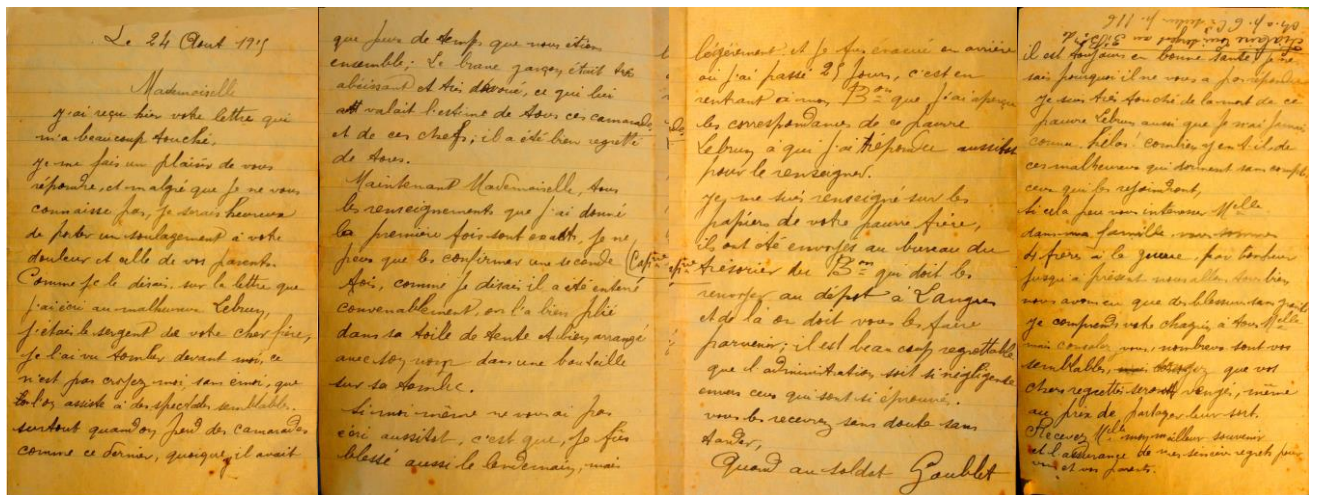 Le 24 Aout 1915
Mademoiselle
j'ai reçu hier votre lettre qui
m'a beaucoup touché,
je me fais un plaisir de vous
répondre, et malgré que je ne vous
connaisse pas, je serais heureux
de porter un soulagement à votre
douleur et celle de vos parents.
Comme je le disais, sur la lettre que
j'ai écri au malheureux Lebrun,
j'étais le sergent de votre cher frère,
je l'ai vu tomber devant moi, ce
n'est pas croyez moi, sans émoi, que
l'on assiste à des spectacles semblables.
surtout quand on perd des camarades
comme ce dernier, quoique, il avait
que peu de temps que nous étions
ensemble; Le brave garçon était très
obéissant et très dévoué, ce qui lui
valait l'estime de tous ces camarades
et de ces chefs, il a été bien regretté
de tous.
Maintenant Mademoiselle, tous
les renseignements que j'ai donné
la première fois sont exact, je ne
peus que les confirmer une seconde
fois, comme je disais il a été enterré
convenablement, on l'a bien plié
dans sa toile de tente et bien arrangé
avec son nom dans une bouteille
sur sa tombe.
Si moi même ne vous ai pas
écri aussitot, c'est que, je fus
blessé aussi le lendemain, mais
légèrement et je fus évacué en arrière
où j'ai passé 25 jours, c'est en
rentrant à mon Bon que j'ai aperçu
les correspondances de ce pauvre
Lebrun à qui j'ai répondu aussitot
pour le renseigner.
je, me suis renseigné sur les
papiers de votre pauvre frère,
ils ont été envoyés au bureau du
trésorier du Bon qui doit les
renvoyer au dépot à Langres
et de là on doit vous les faire
parvenir; il est beaucoup regrettable
que l'administration soit si négligente
envers ceux qui sont si éprouvés.
vous les recevrez sans doute sans
tarder,
Quand au soldat Goublet
il est toujours en bonne santé je ne
sais pourquoi il ne vous a pas répondu
je suis très touché de la mort de ce
pauvre Lebrun aussi que je n'ai jamais
connu. hélas! combien y en t'il de
ces malheureux qui tombent sans compter
ceux qui les rejoindront,
si cela peu vous intéresser Melle
dans ma famille nous sommes
4 frères à la guerre, par bonheur
jusqu'à présent nous allons tous bien
nous avons eu que des blessures sans gravité
je comprends votre chagrin à tous Melle
mais consolez vous, nombreux sont vos
semblables, que vos
chers regrettés seront vengés, même
au prix de partager leur sort.
Recevez Melle mon meilleur souvenir
et l'assurance de mes sincères regrets pour
vous et vos parents.